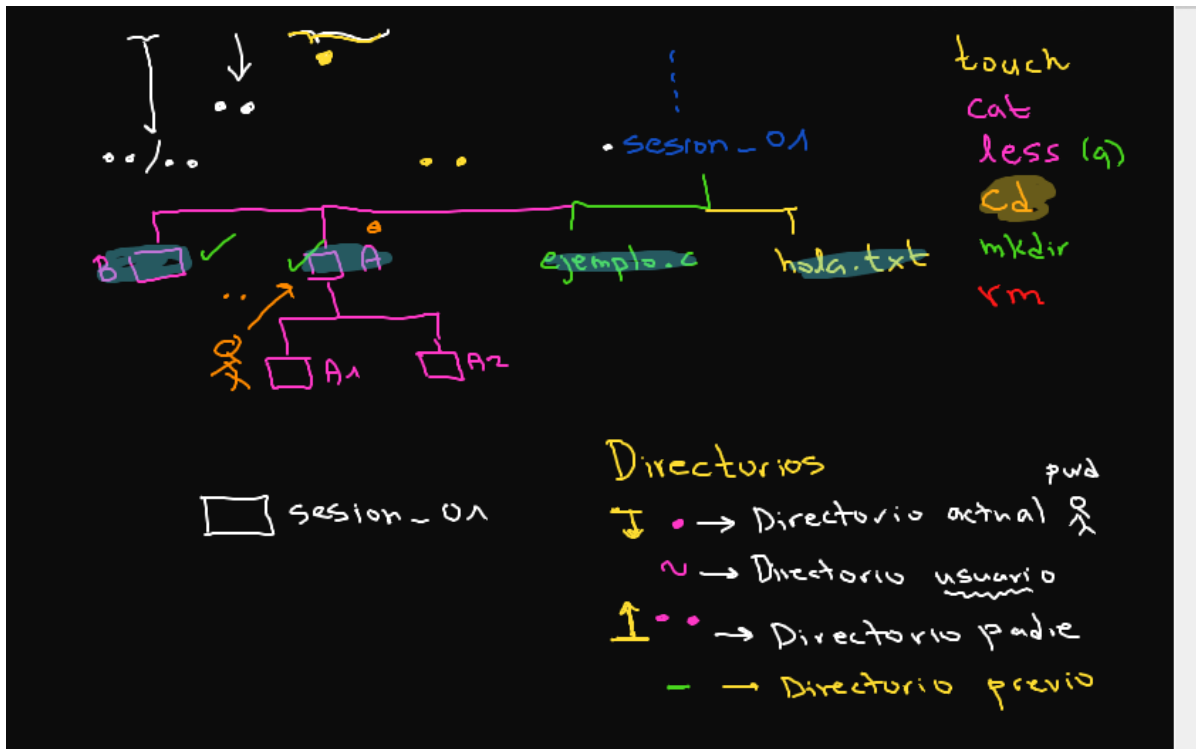 touch
cat
less (q)
cd
mkdir
rm
..
../..
..
. sesion_01
B
A
ejemplo.c
hola.txt
..
A1
A2
sesion_01
Directorios
pwd
. → Directorio actual
~ → Directorio usuario
.. → Directorio padre
- → Directorio previo